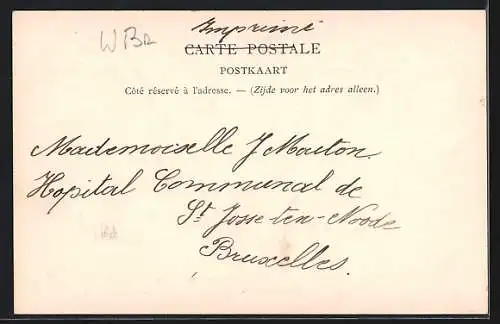 Imprimé
W Br
CARTE POSTALE
POSTKAART
Côté réservé à l'adresse. — (Zijde voor het adres alleen.)
Mademoiselle J Mouton.
Hopital Communal de
St Josse-ten-Noode
Bruxelles.